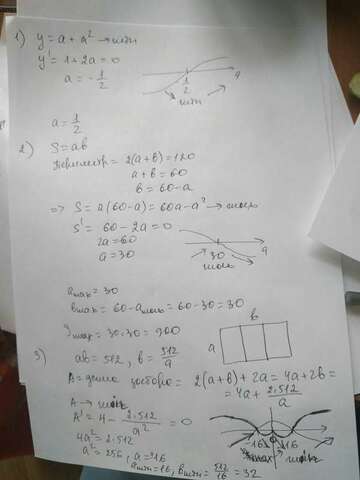 1) y = a + a² → min
y' = 1 + 2a = 0
a = - 1/2
1/2
a
min
a = 1/2
2) S = ab
Периметр = 2(a+b) = 120
a + b = 60
b = 60 - a
=> S = a(60-a) = 60a - a² →
S' = 60 - 2a = 0
2a = 60
a = 30
30
a
a max = 30
b max = 60 - a = 60 - 30 = 30
S max = 30·30 = 900
3) ab = 512, b = 512/a
a
b
A = длина забора = 2(a+b) + 2a = 4a + 2b =
= 4a + 2·512/a
A → min
A' = 4 - 2·512/a² = 0
4a² = 2·512
a² = 256, a = 16
-16 0 16
max min
a min = 16, b min = 512/16 = 32